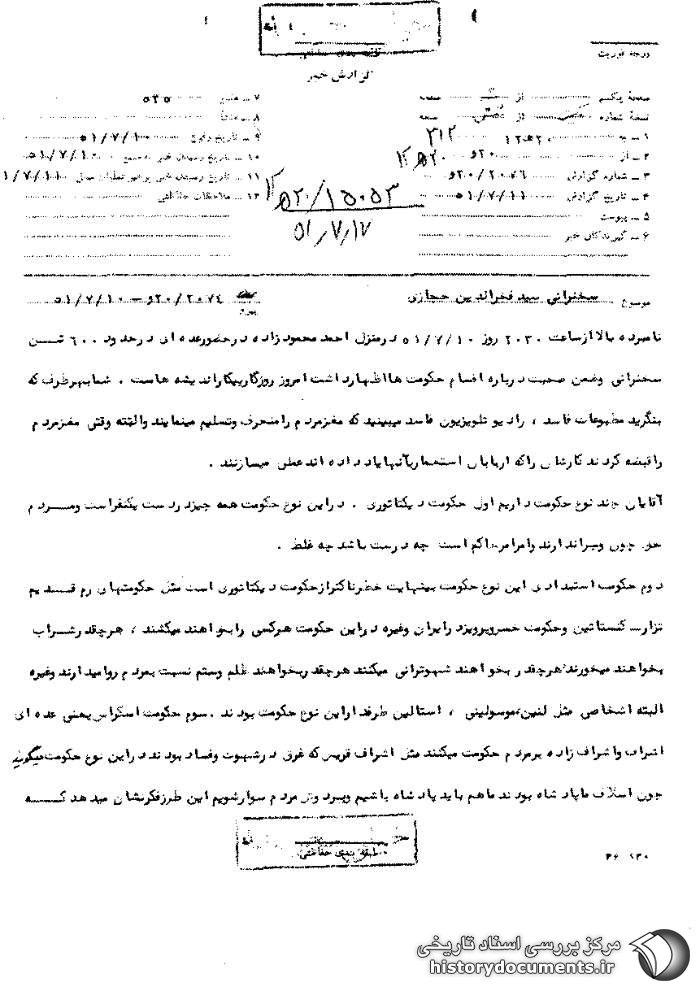 درجه فوریت
گزارش خبر
صفحه یکم از صفحه
نسخه شماره از نسخه
۱ – به ۳۱۲ ۱۲ ه ۲۰
۲ – از ۲۰ و ۱۲ ه ۲۰
۳ – شماره گزارش ۲۰/۲۰۷۶ و
۴ – تاریخ گزارش ۵۱/۷/۱۱
۵ – پیوست
۶ – گیرندگان خبر
۷ – منبع ۵۳۵
۸ – منشأ
۹ – تاریخ وقوع ۵۱/۷/۱۰
۱۰ – تاریخ رسیدن خبر به منبع ۵۱/۷/۱۰
۱۱ – تاریخ رسیدن خبر برهبر عملیات محل ۵۱/۷/۱۱
۱۲ – ملاحظات حفاظتی
۱۵۰۵۳/ ه ۲۰ ۱۲
۵۱/۷/۱۷
موضوع سخنرانی سید فخرالدین حجازی
پیرو ۲۰/۲۰۷۴ و – ۵۱/۷/۱۰
نامبرده بالا از ساعت ۲۰۳۰ روز ۵۱/۷/۱۰ در منزل احمد محمود زاده در حضور عده ای در حدود ۶۰۰ تن
سخنرانی وضمن صحبت درباره اقسام حکومت ها اظهار داشت امروز روزگار پیکار اندیشه هاست . شما بهر طرف که
بنگرید مطبوعات فاسد ، رادیو تلویزیون فاسد میبینید که مغز مردم را منحرف وتسلیم مینمایند والبته وقتی مغز مردم
را قبضه کردند کارشان را که اربابان استعمار بآنها یاد داده اند عملی میسازند .
آقایان چند نوع حکومت داریم اول حکومت دیکتاتوری . در این نوع حکومت همه چیز در دست یکنفر است ومردم
حق چون وچرا ندارند وامر امر حاکم است چه درست باشد چه غلط .
دوم حکومت استبدادی این نوع حکومت بینهایت خطرناکتر از حکومت دیکتاتوری است مثل حکومتهای رم قدیم
تزار کنستانتین وحکومت خسرو پرویز در ایران وغیره در این حکومت هر کس را بخواهند میکشند ، هر چقدر شراب
بخواهند میخورند هر چقدر بخواهند شهوترانی میکنند هر چقدر بخواهند ظلم وستم نسبت بمردم روا میدارند وغیره
البته اشخاصی مثل لنین ، موسولینی ، استالین طرفدار این نوع حکومت بودند . سوم حکومت یعنی عده ای
اشراف واشراف زاده بر مردم حکومت میکنند مثل اشراف قریس که غرق در شهوت وفساد بودند در این نوع حکومت میگویند
چون اسلاف ما پادشاه بودند ما هم باید پادشاه باشیم وبر مردم سوار شویم این طرز فکر نشان میدهد که
طبقه بندی حفاظتی
۳۶ ۱۳۰
مرکز بررسی اسناد تاریخی
historydocuments.ir